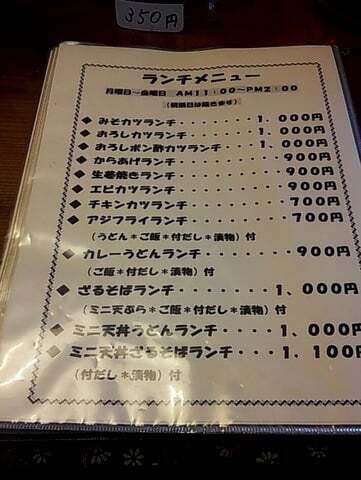 350円
ランチメニュー
月曜日～金曜日 AM11:00～PM2:00
(祝祭日は除きます)
◆ みそカツランチ・・・・・・・・1,000円
◆ おろしカツランチ・・・・・・・1,000円
◆ おろしポン酢カツランチ・・・・1,000円
◆ からあげランチ・・・・・・・・・900円
◆ 生姜焼きランチ・・・・・・・・・900円
◆ エビカツランチ・・・・・・・・・900円
◆ チキンカツランチ・・・・・・・・700円
◆ アジフライランチ・・・・・・・・700円
(うどん＊ご飯＊付だし＊漬物)付
◆ カレーうどんランチ・・・・・・・900円
(ご飯＊付だし＊漬物)付
◆ ざるそばランチ・・・・・・・・1,000円
(ミニ天ぷら＊ご飯＊付だし＊漬物)付
◆ ミニ天丼うどんランチ・・・・1,000円
◆ ミニ天丼ざるそばランチ・・・1,100円
(付だし＊漬物)付